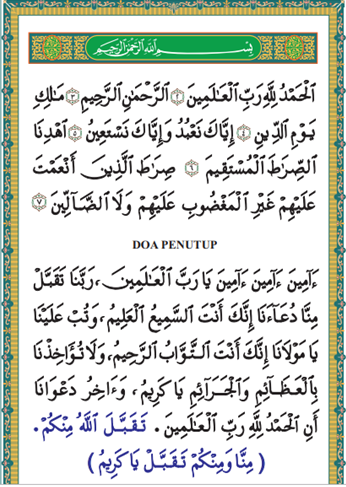 بِسْمِ اللَّهِ الرَّحْمَٰنِ الرَّحِيمِ
الْحَمْدُ لِلَّهِ رَبِّ الْعَالَمِينَ ﴿٢﴾ الرَّحْمَٰنِ الرَّحِيمِ ﴿٣﴾ مَالِكِ
يَوْمِ الدِّينِ ﴿٤﴾ إِيَّاكَ نَعْبُدُ وَإِيَّاكَ نَسْتَعِينُ ﴿٥﴾ اهْدِنَا
الصِّرَاطَ الْمُسْتَقِيمَ ﴿٦﴾ صِرَاطَ الَّذِينَ أَنْعَمْتَ
عَلَيْهِمْ غَيْرِ الْمَغْضُوبِ عَلَيْهِمْ وَلَا الضَّالِّينَ ﴿٧﴾
DOA PENUTUP
ءَامِينَ ءَامِينَ ءَامِينَ يَا رَبَّ الْعَالَمِينَ، رَبَّنَا تَقَبَّلْ
مِنَّا دُعَآءَنَا إِنَّكَ أَنْتَ السَّمِيعُ الْعَلِيمُ، وَتُبْ عَلَيْنَا
يَا مَوْلَانَا إِنَّكَ أَنْتَ التَّوَّابُ الرَّحِيمُ، وَلَا تُؤَاخِذْنَا
بِالْعَظَآئِمِ وَالْجَرَآئِمِ يَا كَرِيمُ، وَءَاخِرُ دَعْوَانَا
أَنِ الْحَمْدُ لِلَّهِ رَبِّ الْعَالَمِينَ. تَقَبَّلَ اللَّهُ مِنْكُمْ.
( مِنَّا وَمِنْكُمْ تَقَبَّلْ يَا كَرِيمُ )